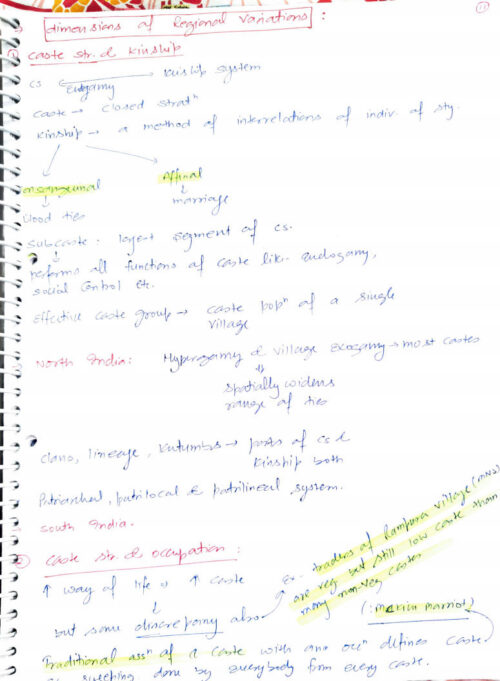 11
dimensions of Regional Variations :
① Caste str. & Kinship
CS ← Endogamy → Kinship system
Caste → closed stratn
Kinship → a method of interrelations of indiv. of sty.
onsanguinal Affinal
↓ ↓
blood ties marriage
Subcaste : largest segment of CS.
performs all functions of caste like endogamy,
social control etc.
Effective caste group → caste popn of a single
village
North India: Hypergamy & village exogamy → most castes
⇓
spatially widens
range of ties
clans, lineage, Kutumbs → parts of CS &
Kinship both
Patriarchal, patrilocal & patrilineal system.
South India.
② Caste str. & occupation :
↑ way of life → ↑ caste
↓
but some discrepancy also
Ex - traders of Rampura village (MNS)
are veg but still low caste than
many non-veg castes
(: McKim Marriot)
Traditional assn of a caste with an occn defines caste
sweeping done by everybody from every caste.